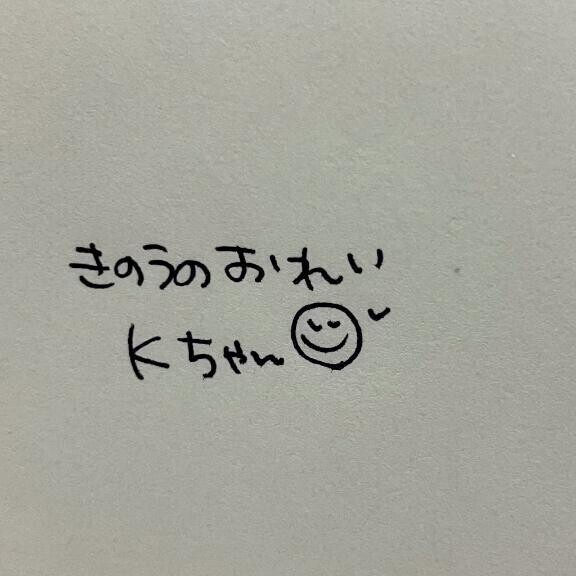 きのうのおれい
Kちゃん